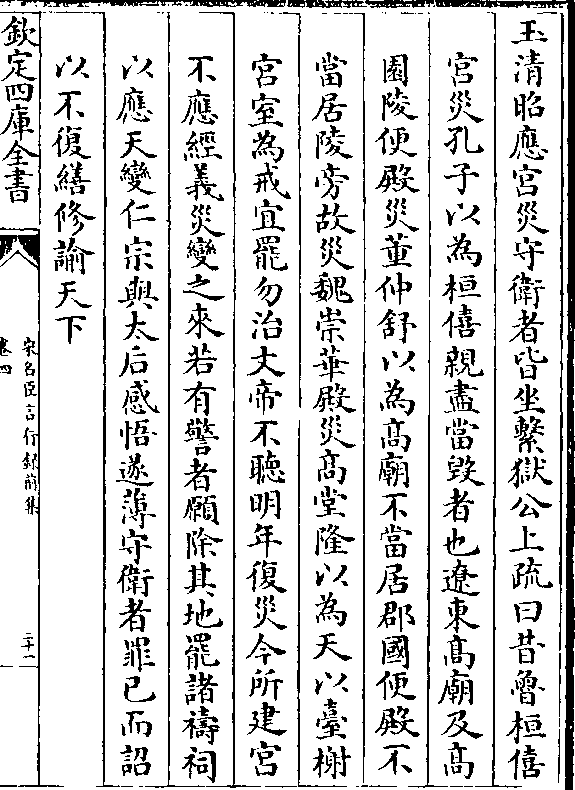 玉清昭應宫災守衛者皆坐繫獄公上疏曰昔魯桓僖
宫災孔子以為桓僖親盡當毀者也遼東髙廟及髙
園陵便殿災董仲舒以為髙廟不當居郡國便殿不
當居陵旁故災魏崇華殿災髙堂隆以為天以臺榭
宫室為戒宜罷勿治文帝不聽明年復災今所建宫
不應經義災變之來若有警者願除其地罷諸禱祠
以應天變仁宗與太后感悟遂薄守衛者罪已而詔
以不復繕修諭天下
欽定四庫全書
宋名臣言行録前集
卷四
二十一